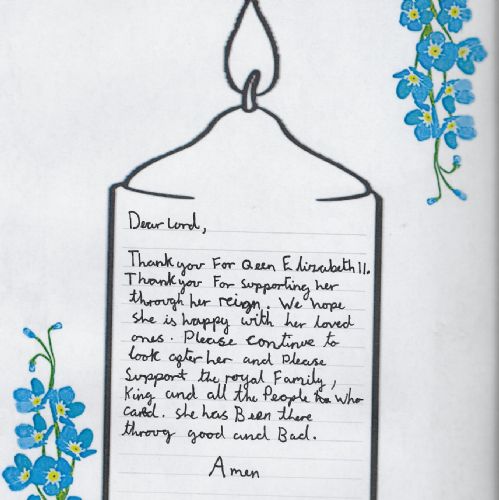 Dear Lord,
Thank you For Qeen Elizabeth II.
Thank you For supporting her
through her reign. We hope
she is happy with her loved
ones. Please continue to
look after her and Please
Support the royal Family,
King and all the People who
cared. she has Been there
throug good and Bad.
Amen